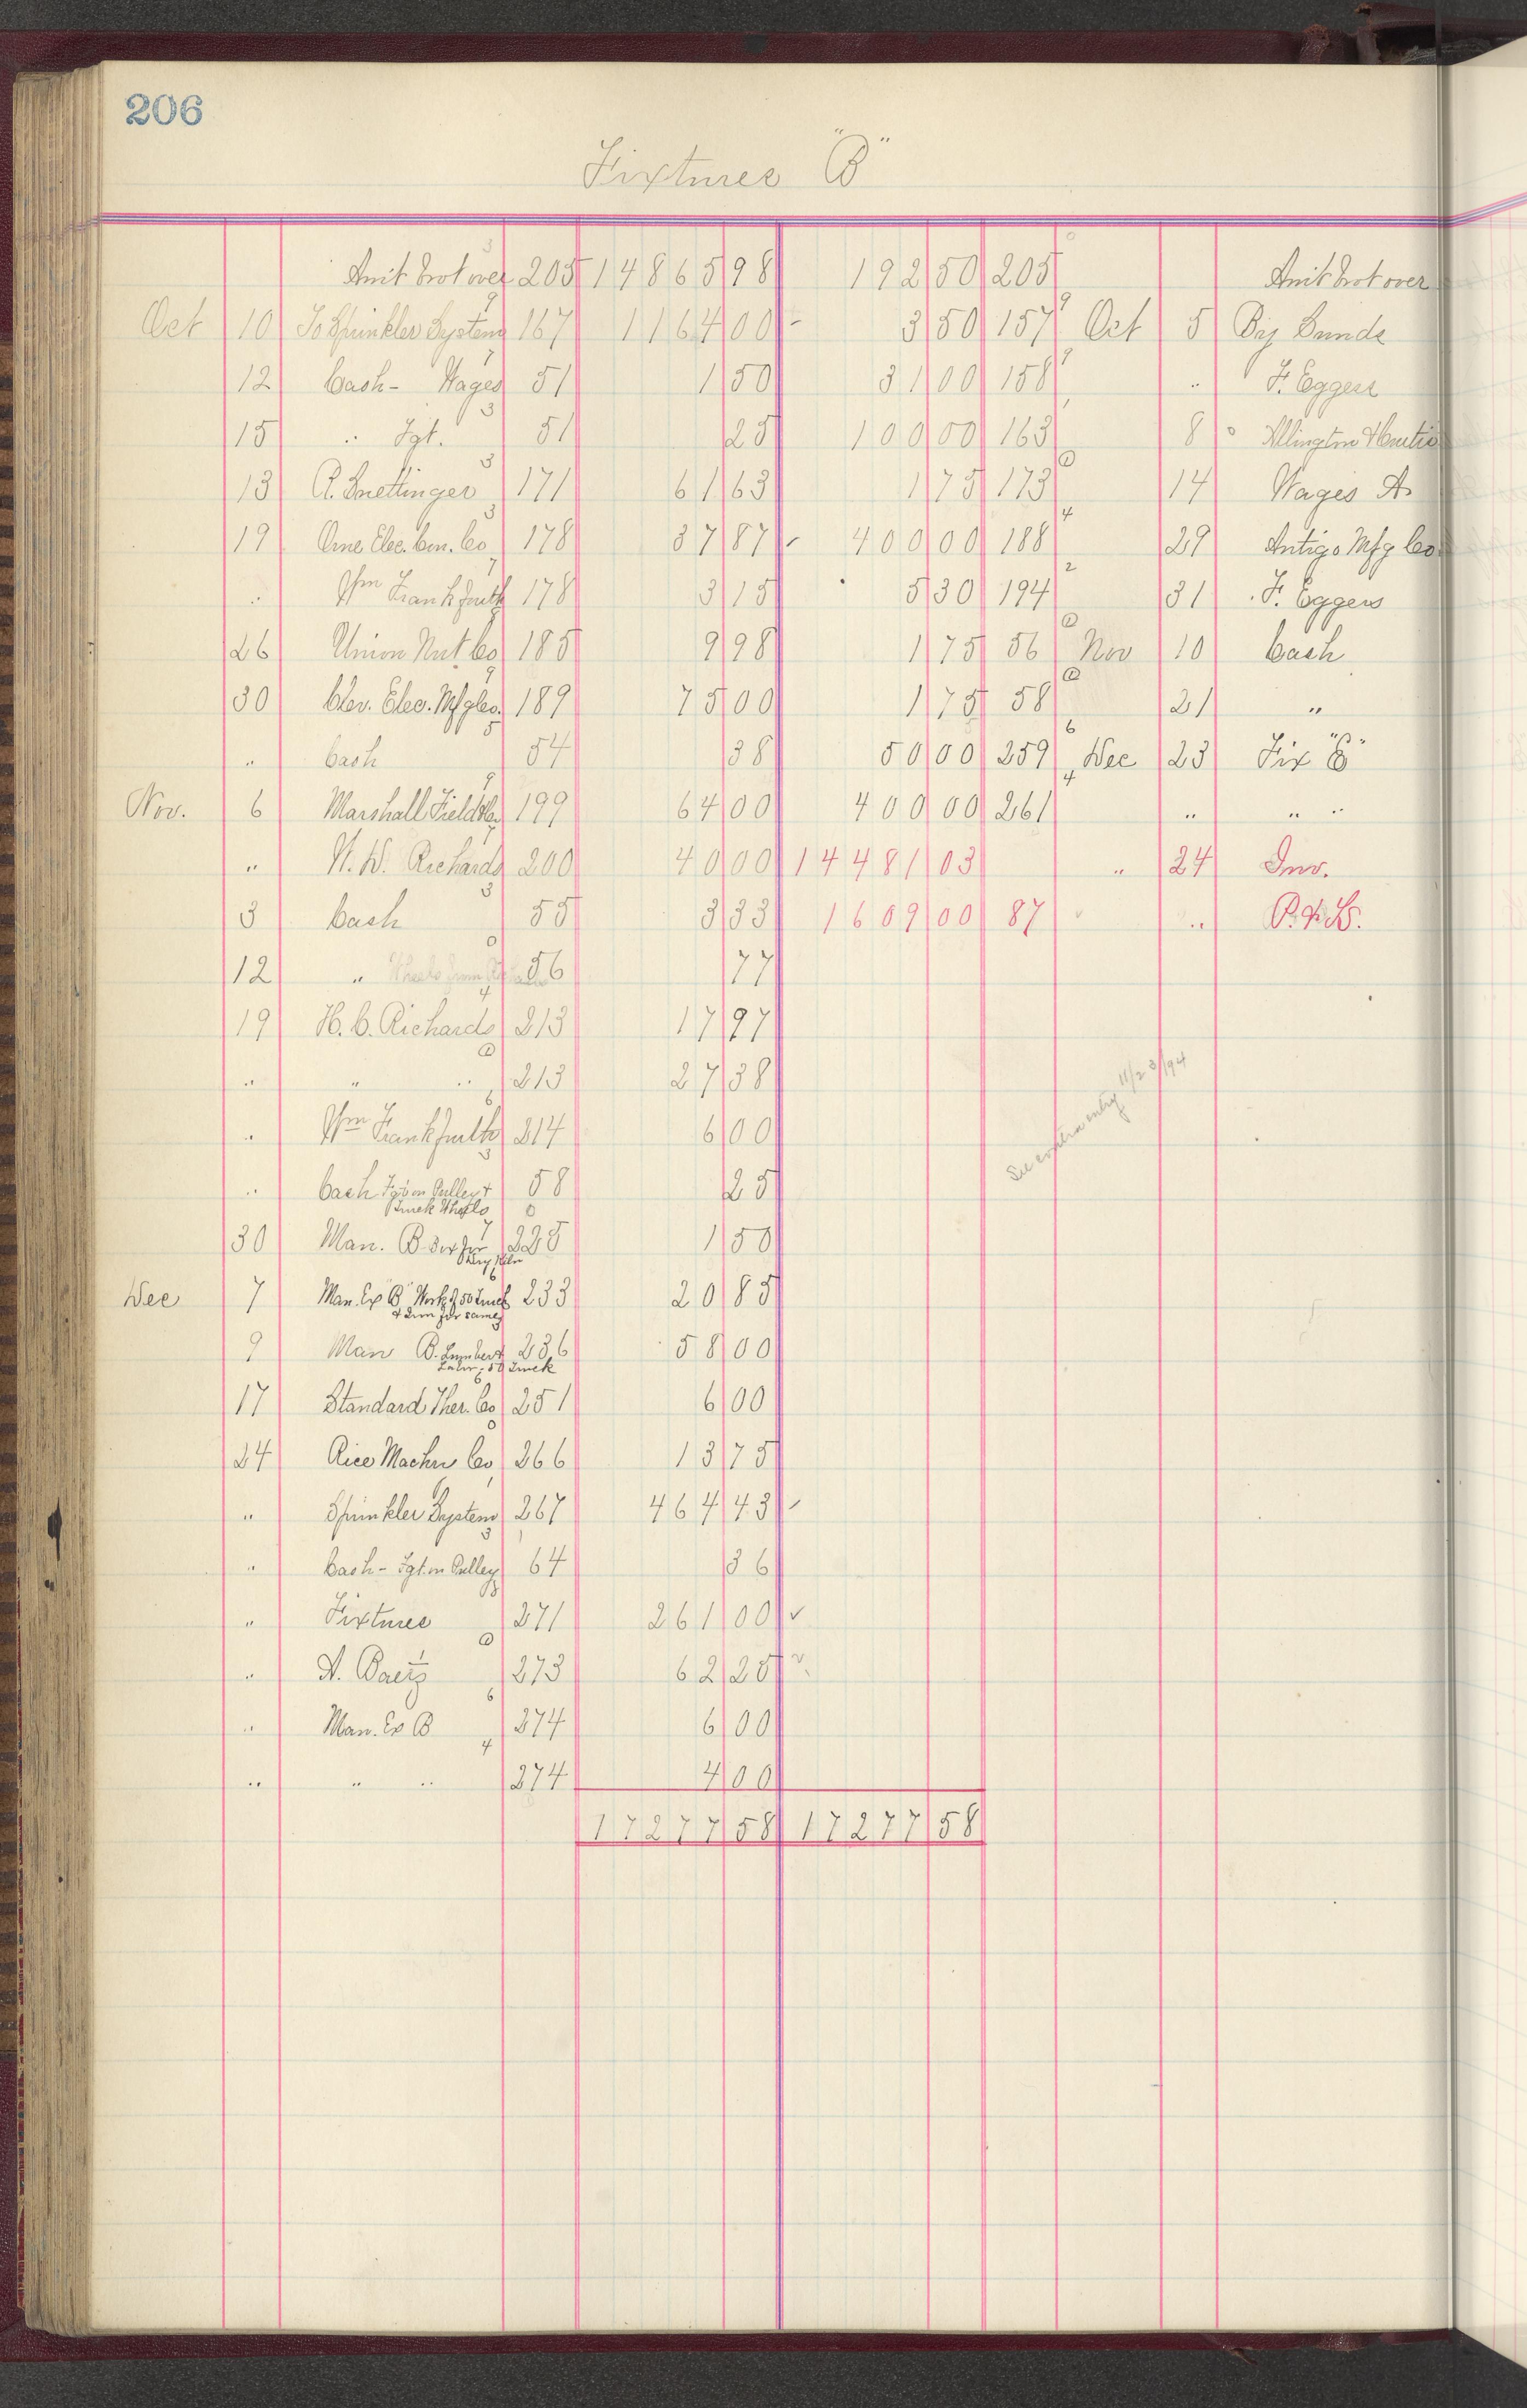 206
Fixtures "B"
Amt brot over 205 14865 98 192 50 205 Amt brot over
Oct 10 To Sprinkler System 167 1164 00 3 50 157 Oct 5 By Sunds
12 Cash - Wages 51 1 50 31 00 158 " F. Eggers
15 " Fgt. 51 25 100 00 163 8 Allington &
13 A. Snettinger 171 61 63 1 75 173 14 Wages A
19 Elec. Co 178 37 87 400 00 188 29 Antigo Mfg Co
" Wm Frankfurth 178 3 15 5 30 194 31 F. Eggers
26 Union Nut Co 185 9 98 1 75 56 Nov 10 Cash
30 Clev. Elec. Mfg Co. 189 75 00 1 75 58 21 "
" Cash 54 38 50 00 259 Dec 23 Fix "B"
Nov. 6 Marshall Field & Co 199 64 00 400 00 261 " " "
" W. D. Richards 200 40 00 14481 03 " 24 Inv.
3 Cash 55 3 33 1609 00 87 " P. & L.
12 " 56 77
19 H. C. Richards 213 17 97
" " " 213 27 38
See contra entry 11/23/94
" Wm Frankfurth 214 6 00
" Cash Fgt on Pulley & 58 25
Truck Wheels
30 Man. B 225 1 50
Dec 7 Man. Ex "B" Work on 50 Truck 233 20 85
for same
9 Man B. Lumber & 236 58 00
Labor 50 Truck
17 Standard Ther. Co 251 6 00
24 Rice Machn Co 266 13 75
" Sprinkler System 267 464 43
" Cash - Fgt. on Pulley 64 36
" Fixtures 271 261 00
" A. Paetz 273 62 25
" Man. Ex B 274 6 00
" " " 274 4 00
17277 58 17277 58